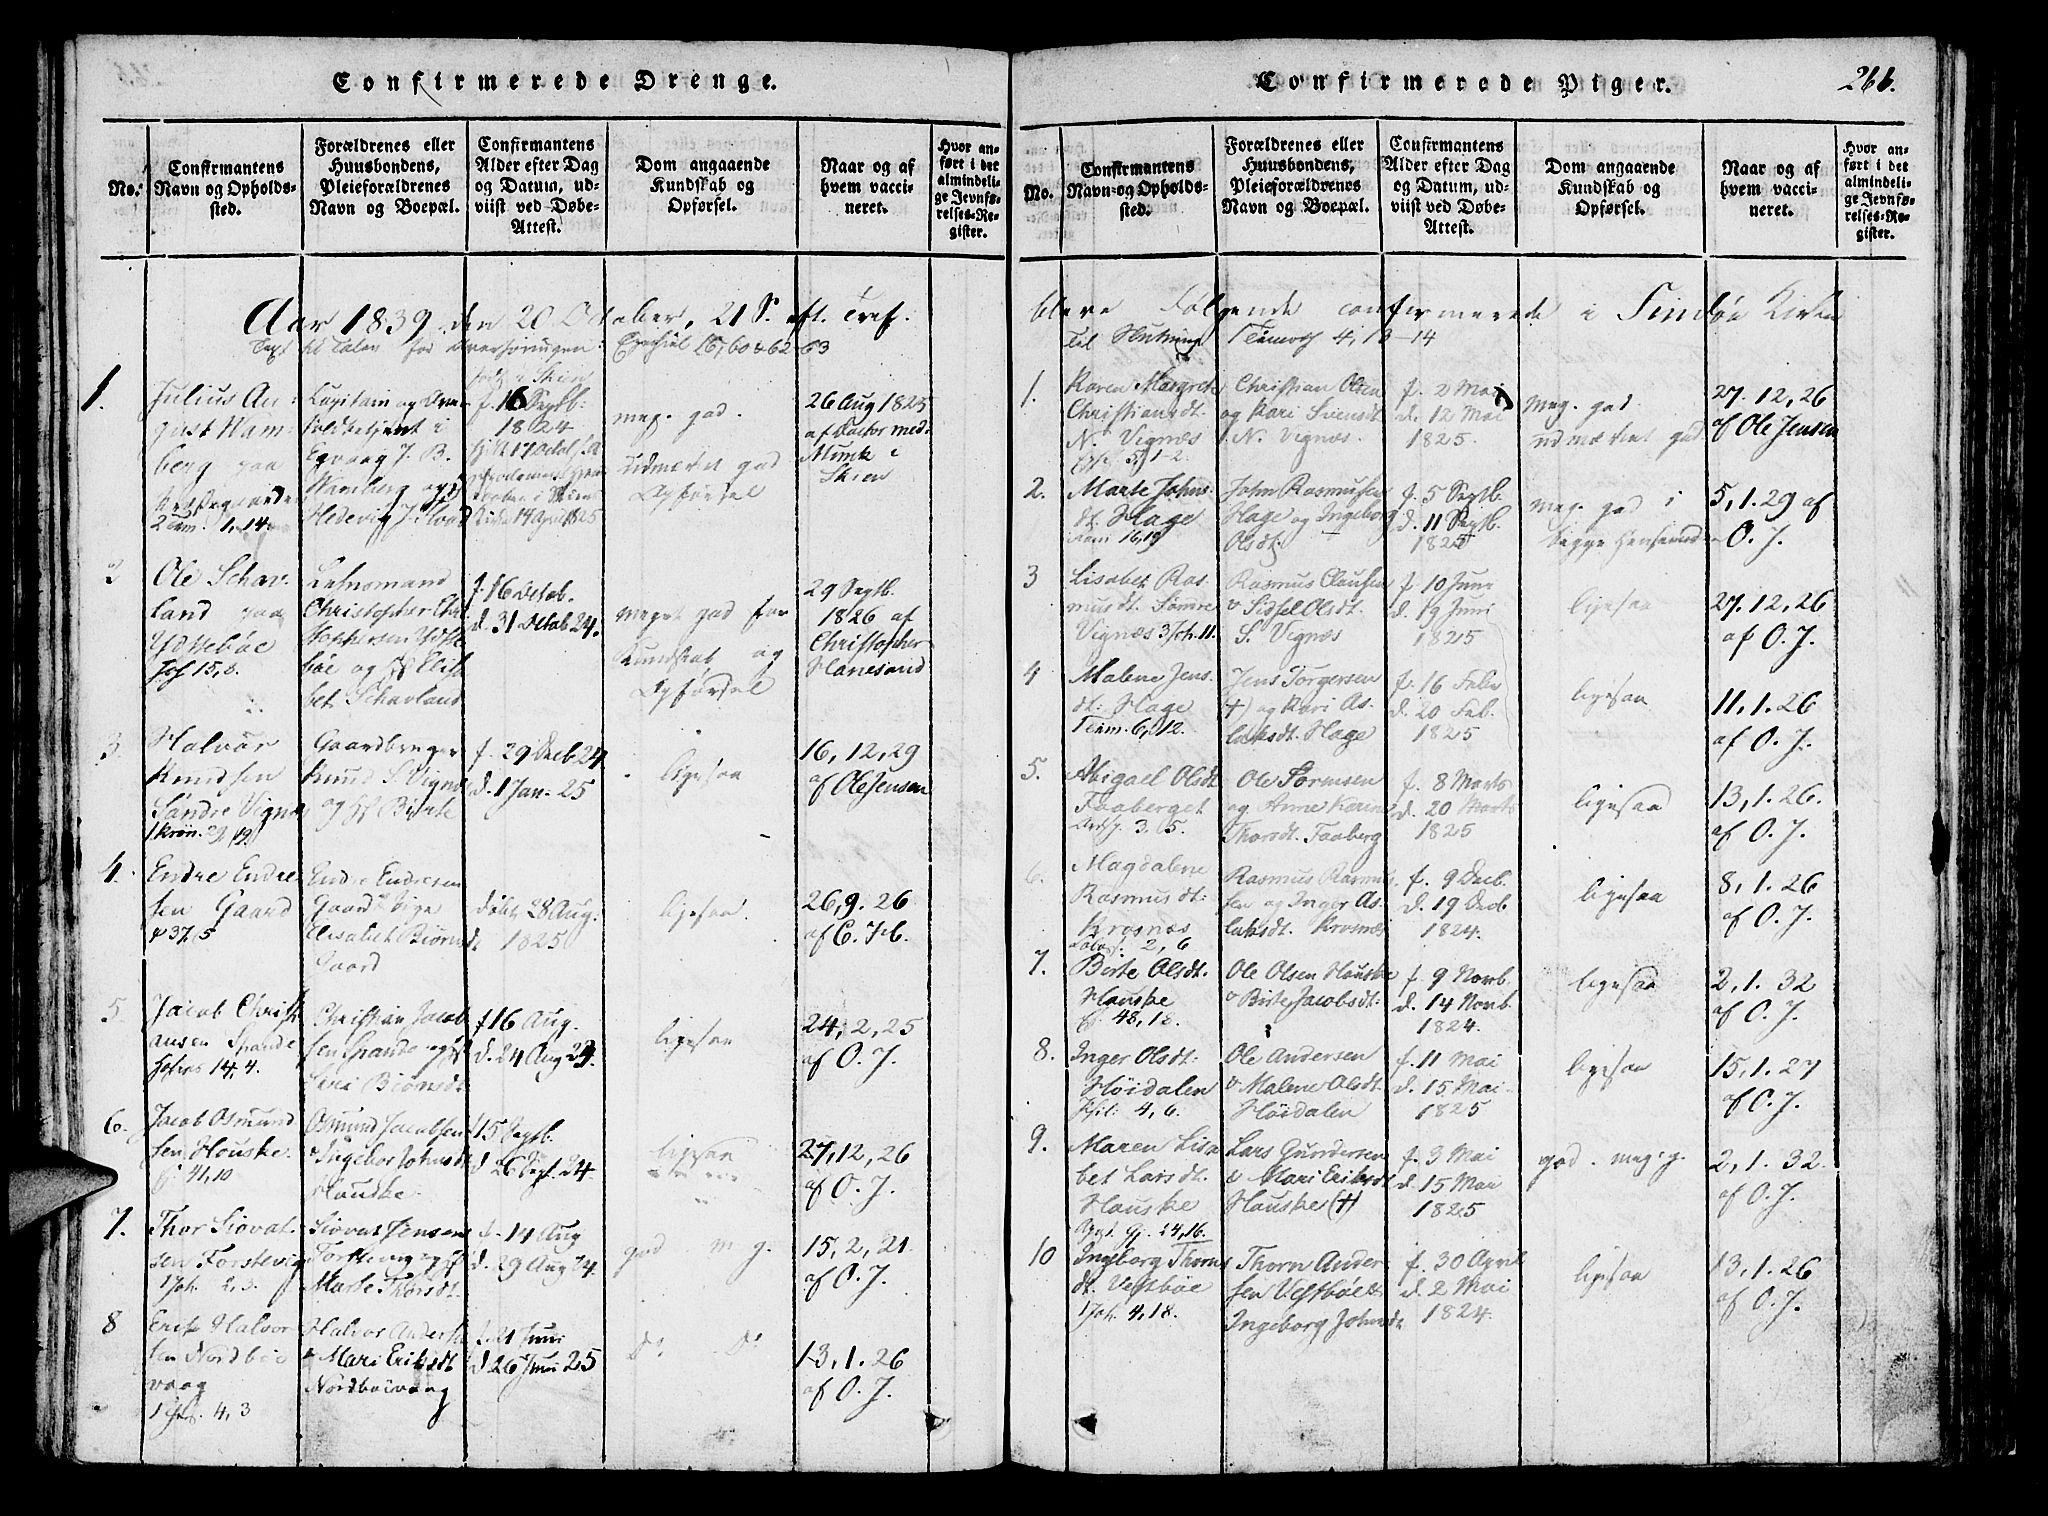 Confirmerede Drenge.
No.
Confirmantens
Navn og Opholds-
sted.
Forældrenes eller
Huusbondens,
Pleieforældrenes
Navn og Boepæl.
Confirmantens
Alder efter Dag
og Datum, ud-
viist ved Døbe-
Attest.
Dom angaaende
Kundskab og
Opførsel.
Naar og af
hvem vacci-
neret.
Hvor an-
ført i det
almindeli-
ge Jevnfø-
relses-Re-
gister.
Aar 1839 den 20 October, 21 S. eft. Tref.
til Talen for 16,60 & 62-63
1.
Julius Au-
gust Wam-
berg paa
2 Tim. 1,14
Capitain og
Toldbetjent i
J. B.
Wamberg og
Hedevig
Skien
f. 16 Septb.
1824
17 Octob.
i Skiens
14 April 1825
meg. god.
udmærket god
Opførsel
26 Aug 1825
af Doctor med.
Munk i
Skien
2
Ole Schav-
land paa
Ydstebøe
Joh 15,8.
Lensmand
Christopher Chri
stophersen Ydste
bøe og Elisa
bet Schavland
f. 16 Octob.
d. 31 Octob 24.
meget god for
Kundskab og
Opførsel
29 Septb.
1826 af
Christopher
Hanesand
3.
Halvor
Knudsen
Søndre Vignæs
1 Krøn. 29,19.
Gaardbruger
Knud S. Vignæs
og Birte
f. 29 Decb 24
d. 1 Jan. 25
ligesaa
16, 12, 29
af Ole Jensen
4.
Endre Endre-
sen Gaard
ψ 37,5
Endre Endresen
Gaard
Elisabet Biørnsdt
Gaard
døbt 28 Aug.
1825
ligesaa.
26, 9. 26
af C. Jb.
5
Jacob Christi
ansen Spande
Johs 14,4.
Christian Jacob
sen Spande og
Siri Biørnsdt.
f 16 Aug.
d. 24 Aug
ligesaa
24, 2, 25
af O. J.
6.
Jacob Osmund
sen Houske.
41,10
Osmund Jacobsen
Ingebor Johnsdt
Houske.
15 Septb.
d 26 Sept. 24.
ligesaa
27, 12, 26
af O. J.
7.
Thor Siovat-
sen Forstevig
1 Joh. 2,3.
Siovat Jensen
Forstevig og
Marte Thorsdt.
f. 14 Aug
d. 29 Aug 24.
god m g.
15, 2, 21.
af O. J.
8
Erik Halvor
sen Nordbøe
vaag
4,3
Halvor Anders
Mari Eriksdt
Nordboivaag
f. 21 Juni
d 26 Juni 25
Do Do
13, 1. 26
af O. J.
Confirmerede Piger.
266.
No.
Confirmantens
Navn og Opholds-
sted.
Forældrenes eller
Huusbondens,
Pleieforældrenes
Navn og Boepæl.
Confirmantens
Alder efter Dag
og Datum, ud-
viist ved Døbe-
Attest.
Dom angaaende
Kundskab og
Opførsel.
Naar og af
hvem vacci-
neret.
Hvor an-
ført i det
almindeli-
ge Jevnfø-
relses-Re-
gister.
bleve Følgende confirmerede i Findøe Kirke
Til Slutning 1 Timoth 4, 13-14
1.
Karen Margrete
Christiansdt.
N. Vignæs
5, 1-2.
Christian Olsen
og Kari Svensdt
N. Vignæs.
f. 2 Mai
d. 12 Mai
1825.
Meg. god.
udmærket god
27. 12, 26
af Ole Jensen
2.
Marte Johns-
dt. Hage
Rom 16,19
John Rasmusen
Hage og Ingeborg
Olsdt.
f. 5 Septb.
d. 11 Septb.
1825
meg. god i
begge Henseend
5, 1. 29 af
O. J.
3
Lisabet Ras-
musdt. Søndre
Vignæs 3 Joh. 11.
Rasmus Clausen
Sidsel Olsdt.
S. Vignæs
f. 10 Juni
d. 19 Juni
1825
ligesaa
27. 12, 26
af O. J.
4
Malene Jens-
dt. Hage
1 Tim. 6, 12.
Jens Torgersen
(†) og Kari As-
laksdt. Hage
f. 16 Febr
d. 20 Feb.
1825
ligesaa
11, 1. 26
af O. J.
5.
Abigael Olsdt
Faaberget
3. 5.
Ole Sørensen
og Anne Karine
Thorsdt. Faaberg
f. 8 Marts
d. 20 Marts
1825
ligesaa
13, 1. 26.
af O. J.
6.
Magdalene
Rasmusdt.
Krosnæs
2, 6
Rasmus Rasmus-
sen og Inger As-
laksdt. Krosnæs
f. 9 Decb.
d. 19 Decb
1824.
ligesaa
8, 1. 26
af O. J.
7.
Birte Olsdt.
Houske
48, 18.
Ole Olsen Houske
Birte Jacobsdt.
f. 9 Novb.
d. 14 Novb.
1824.
ligesaa
2, 1. 32
af O. J.
8.
Inger Olsdt.
Høidalen
Phil. 4, 6.
Ole Andersen
Malene Olsdt.
Høidalen
f. 11 Mai
d. 15 Mai.
1825
ligesaa
15, 1. 27
af O. J.
9.
Maren Lisa
bet Larsdt.
Houske
Apost. Gj. 24,16.
Lars Gundersen
Mari Eriksdt
Houske (†)
f. 3 Mai
d. 15 Mai
1825
god. meg. g.
2, 1. 32.
af O. J.
10
Ingeborg Thorns
dt. Vestbøe
1 Joh. 4, 18.
Thorn Ander-
sen Vestbøe
Ingeborg Johnsdt
f. 30 April
d. 2 Mai
1824.
ligesaa
13, 1. 26
af O. J.